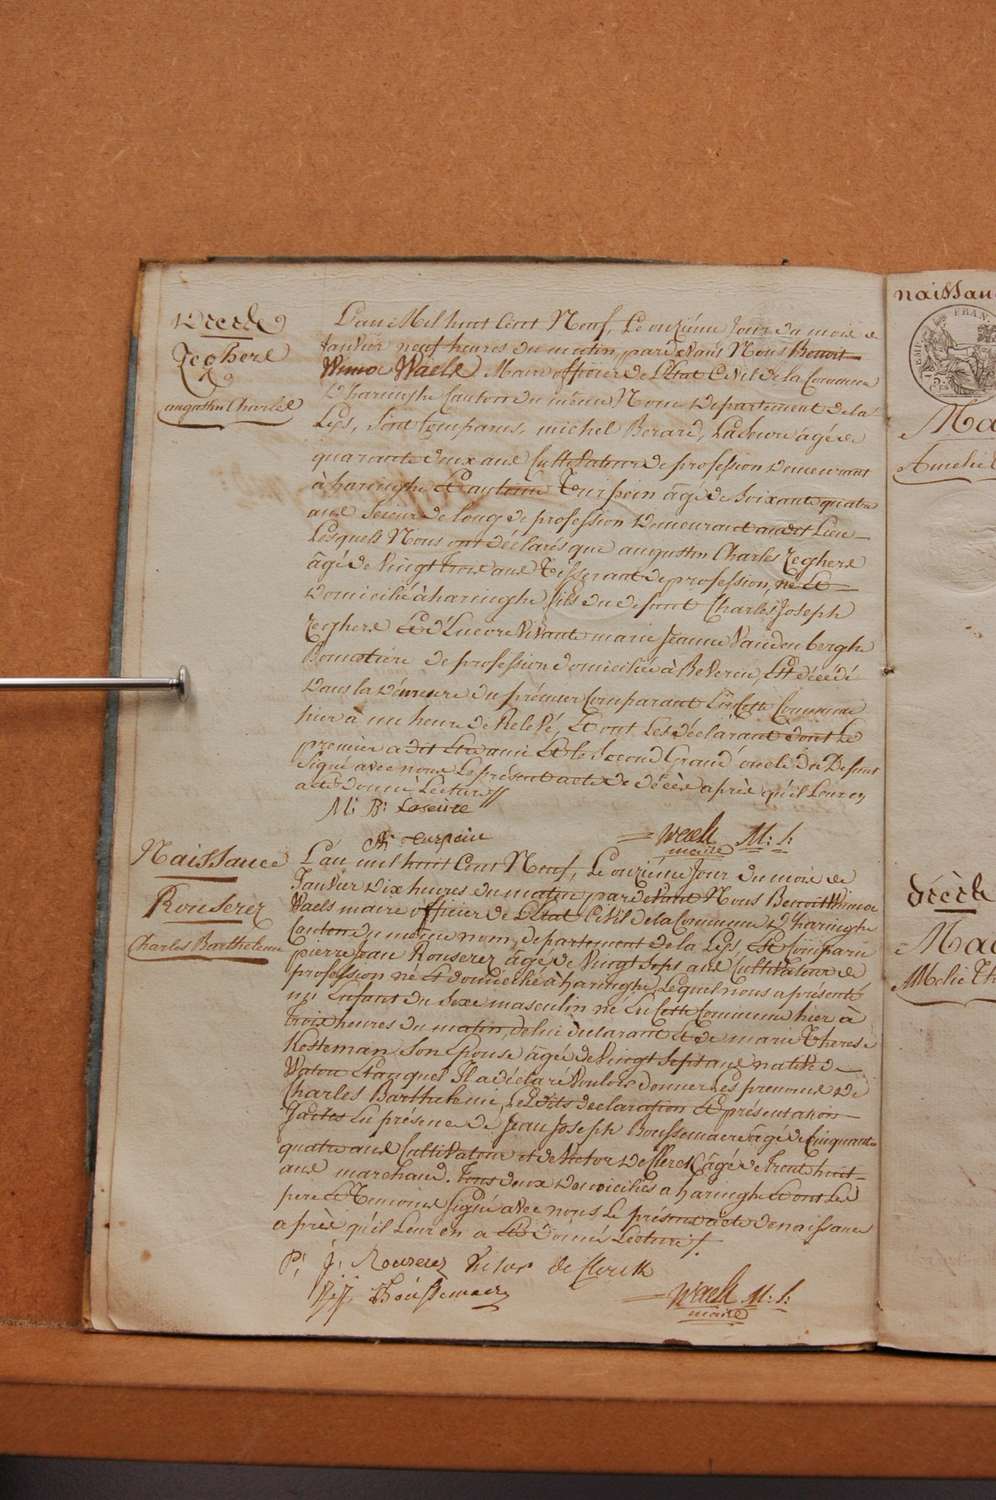 Décède
Zeghere
augustin Charles
L'an Mil huit Cent Neuf, Le onzième Jour du mois de
Janvier neuf heures du matin, pardevant Nous Benoit
Winoc Waels Maire officier de L'Etat Civil de la Commune
D'haringhe Canton du même Nom Departement de la
Lys, Sont Comparus, michel Berard, Laseure âgé de
quarante deux ans Cultivateur de profession Demeurant
à haringhe Et antoine Turpein âgé de Soixante quatre
ans Scieur de long de profession Demeurant au dit Lieu
Lesquels Nous ont déclarés que augustin Charles Zeghere
âgé de Vingt Trois ans Tisserant de profession, né Et
Domicilié à haringhe fils du defunt Charles Joseph
Zeghere Et d'Encore Vivante marie Jeanne Vanden berghe
de profession domiciliée à Beveren, Est décédé
Dans la Demeure du prémier Comparant En Cette Commune
hier à une heure de Relevé, Et ont Les déclarant dont Le
premier a dit Etre ami Et le Second Grand oncle du Defunt
Signé avec nous Le présent acte de décès après qu'il Leur en
a été Donné Lecture //
M: B: Laseure
A: Turpein
Waels M: S:
maire
Naissance
Rouserez
Charles Barthelemi
L'an mil huit Cent Neuf, Le onzieme Jour du mois de
Janvier Dix heures du matin pardevant Nous Benoit Winoc
Waels maire officier de L'Etat Civil de la Commune D'haringhe
Canton du même nom, departement de la Lys Est Comparu
pierre Jean Rouserez âgé de Vingt Sept ans Cultivateur de
profession né Et domicilié à haringhe, Lequel nous a présenté
un Enfant du Sexe masculin né En Cette Commune hier à
Trois heures du matin, de lui déclarant Et de marie Therese
Kesteman Son Epouse âgée de Vingt Sept ans native de
Watou Et auquel Il a déclaré Vouloir donner Les prenoms de
Charles Barthelemi, Lesdits declaration Et présentation
faites En présence de Jean Joseph Boussemaere âgé de Cinquante
quatre ans Cultivateur et de Victor De Clerck âgé de Trente huit
ans marchand. Tous deux Domiciliés a haringhe Et ont Les
pere Et Temoins Signé avec nous Le présent acte de naissance
après qu'il Leur en a Eté Donné Lecture /.
P: J: Rouserez Victor de Clerck
J: J: Boussemaere
Waels M: S:
maire
naissan
EMP. FRAN
Ma
Amelie
décède
Ma
Melie Th